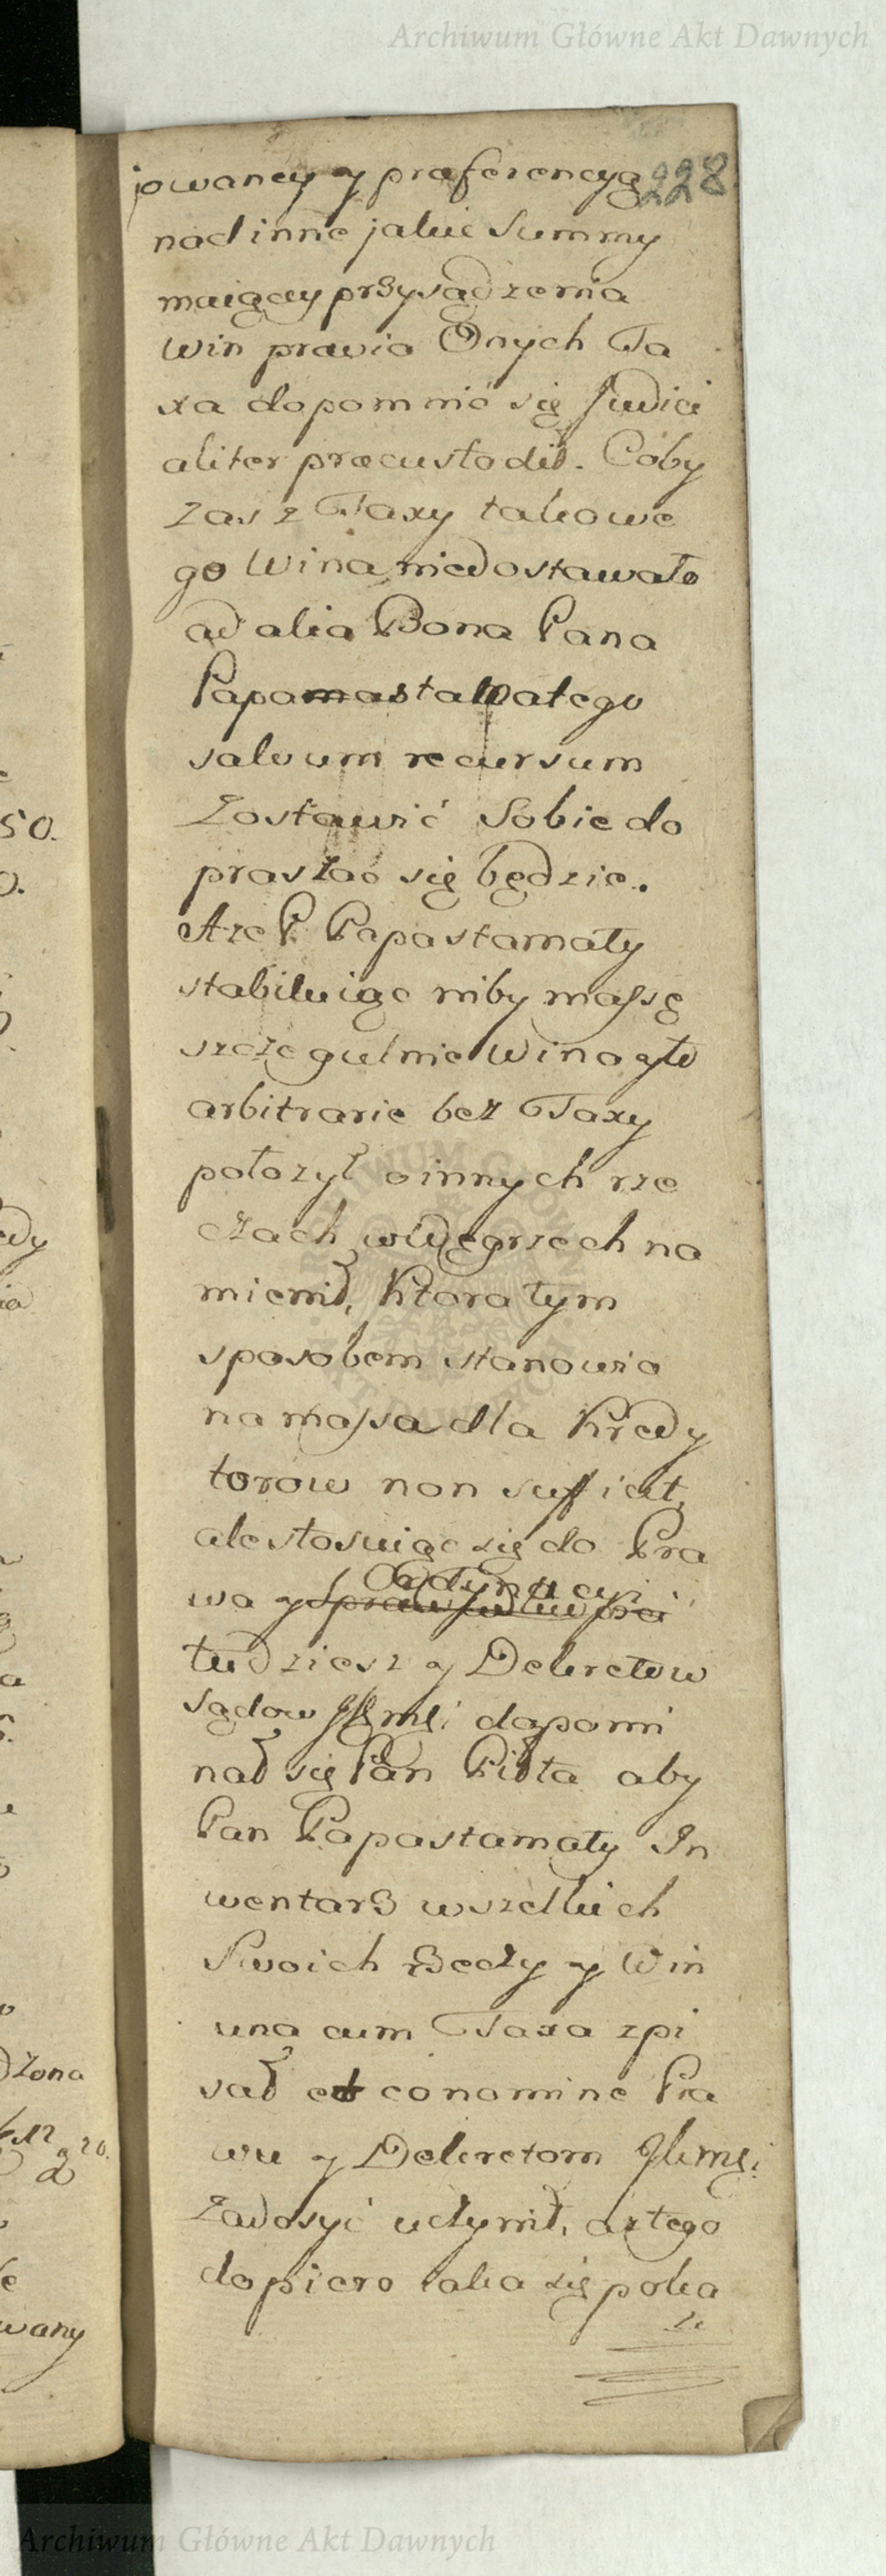 Archiwum Główne Akt Dawnych
228
jowaney y præferencyą
nad inne jakie Summy
maiącey przysądzenia
Win prawia Onych Ta
xa dopomnić się Judici
aliter præcustodił. Coby
zas z Taxy takowe
go Wina niedostawało
ad alia Bona Pana
salvum recursum
Zostawić Sobie do
praszać się będzie.
Aże P. Papastamaty
stabiluiąc niby massę
szczegulnie Wina ylo
arbitrarie bez Taxy
położył o innych rze
czach w Węgrzech na
mienił, Ktora tym
sposobem stanowio
na massa dla Kredy
torow non suficit,
ale stosuiąc się do Pra
Ordynacyi
wa y Sprawiedliwości
tudziesz y Dekretow
sądow dopomi
nał się Pan Pibta aby
Pan Papastamaty In
wentarz wszelkich
Swoich Rzeczy y Win
una cum Taxa zpi
sał et eo nomine Pra
wu y Dekretom
Zadosyć uczynił, a z tego
dopiero iaka się poka
że
50.
0.
edy
żona
20.
wany
Archiwum Główne Akt Dawnych